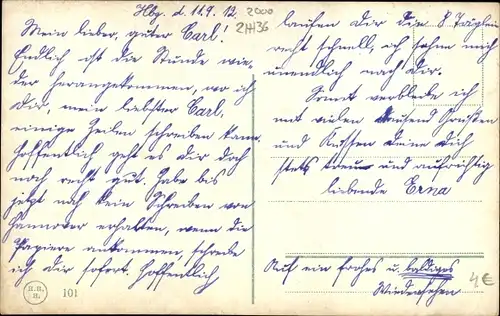 Hbg. d. 11.9.12.
2000
24436
Mein lieber, guter Carl!
Endlich ist die Stunde wie-
der herangekommen, wo ich
Dir, mein liebster Carl,
einige Zeilen schreiben kann.
Hoffentlich geht es Dir doch
noch recht gut. Habe bis
jetzt noch kein Schreiben von
Hannover erhalten, wenn die
Papiere ankommen, schreibe
ich Dir sofort. Hoffentlich
laufen Dir die 8 Täglein
recht schnell, ich sehne mich
unendlich nach Dir.
Somit verbleibe ich
mit vielen tausend Grüssen
und Küssen Deine Dich
stets treu und aufrichtig
liebende Erna
Auf ein frohes u. baldiges
Wiedersehen
4€
H.H.
H.
101